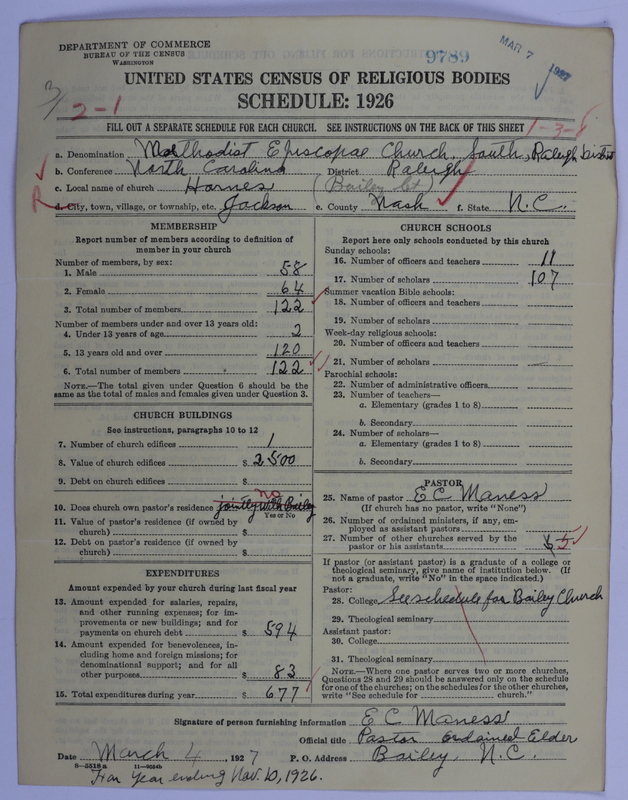 DEPARTMENT OF COMMERCE
BUREAU OF THE CENSUS
WASHINGTON
9789
MAR 7 1927
2-1
UNITED STATES CENSUS OF RELIGIOUS BODIES
SCHEDULE: 1926
FILL OUT A SEPARATE SCHEDULE FOR EACH CHURCH. SEE INSTRUCTIONS ON THE BACK OF THIS SHEET
a. Denomination Methodist Episcopal Church, South, Raleigh District
b. Conference North Carolina District Raleigh
c. Local name of church Hornes (Bailey Ct)
d. City, town, village, or township, etc. Jackson e. County Nash f. State N.C.
MEMBERSHIP
Report number of members according to definition of member in your church
Number of members, by sex:
1. Male 58
2. Female 64
3. Total number of members 122
Number of members under and over 13 years old:
4. Under 13 years of age 2
5. 13 years old and over 120
6. Total number of members 122
NOTE.—The total given under Question 6 should be the same as the total of males and females given under Question 3.
CHURCH BUILDINGS
See instructions, paragraphs 10 to 12
7. Number of church edifices 1
8. Value of church edifices $ 2500
9. Debt on church edifices $
10. Does church own pastor's residence jointly with Bailey no
Yes or No
11. Value of pastor's residence (if owned by church) $
12. Debt on pastor's residence (if owned by church) $
EXPENDITURES
Amount expended by your church during last fiscal year
13. Amount expended for salaries, repairs, and other running expenses; for improvements or new buildings; and for payments on church debt $ 594
14. Amount expended for benevolences, including home and foreign missions; for denominational support; and for all other purposes $ 83
15. Total expenditures during year $ 677
CHURCH SCHOOLS
Report here only schools conducted by this church
Sunday schools:
16. Number of officers and teachers 11
17. Number of scholars 107
Summer vacation Bible schools:
18. Number of officers and teachers
19. Number of scholars
Week-day religious schools:
20. Number of officers and teachers
21. Number of scholars
Parochial schools:
22. Number of administrative officers
23. Number of teachers—
a. Elementary (grades 1 to 8)
b. Secondary
24. Number of scholars—
a. Elementary (grades 1 to 8)
b. Secondary
PASTOR
25. Name of pastor E C Maness
(If church has no pastor, write "None")
26. Number of ordained ministers, if any, employed as assistant pastors
27. Number of other churches served by the pastor or his assistants 5
If pastor (or assistant pastor) is a graduate of a college or theological seminary, give name of institution below. (If not a graduate, write "No" in the space indicated.)
Pastor:
28. College See schedule for Bailey Church
29. Theological seminary
Assistant pastor:
30. College
31. Theological seminary
NOTE.—Where one pastor serves two or more churches, Questions 28 and 29 should be answered only on the schedule for one of the churches; on the schedules for the other churches, write "See schedule for church."
Signature of person furnishing information E C Maness
Official title Pastor ordained Elder
Date March 4, 1927 P. O. Address Bailey, N.C.
For Year ending Nov. 10, 1926.